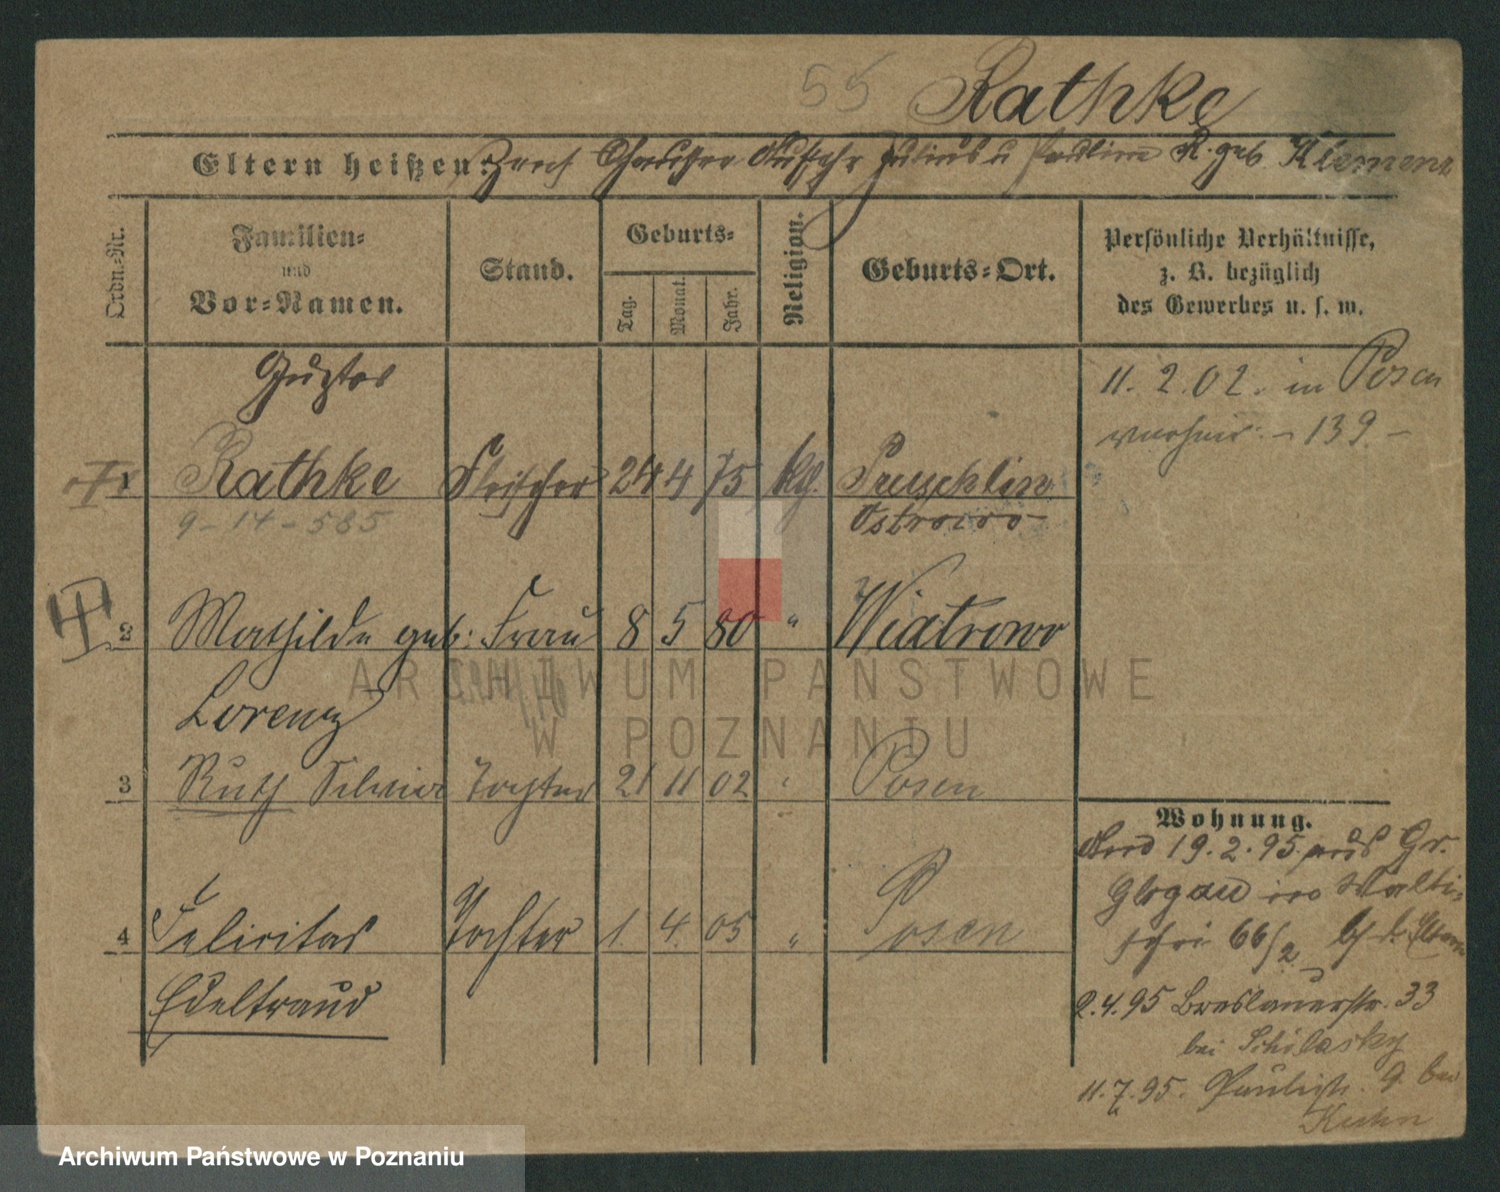 55 Rathke
Eltern heißen: Julius u Pauline R. geb. Klemenz
Ordn.-Nr.
Familien-
und
Vor-Namen.
Stand.
Geburts-
Tag.
Monat.
Jahr.
Religion.
Geburts-Ort.
Persönliche Verhältnisse,
z. B. bezüglich
des Gewerbes u. s. w.
Gustav
11. 2. 02. in Posen
- 139 -
1 Rathke Fleischer 24 4 75 kg. Preuschlin
9 - 14 - 585 Ostrowo
2 Mathilde geb: Frau 8 5 80 " Wiatrowo
Lorenz
3 Ruth Silvia Tochter 21 11 02 " Posen
Wohnung.
19. 2. 95 aus Gr.
Glogau
4 Felicitas Tochter 1. 4. 05 " Posen
66/2
Edeltraud
2. 4. 95 Breslauerstr. 33
bei
11. 7. 95. Paulistr. 9 bei
Kuhn
ARCHIWUM PAŃSTWOWE
W POZNANIU
Archiwum Państwowe w Poznaniu